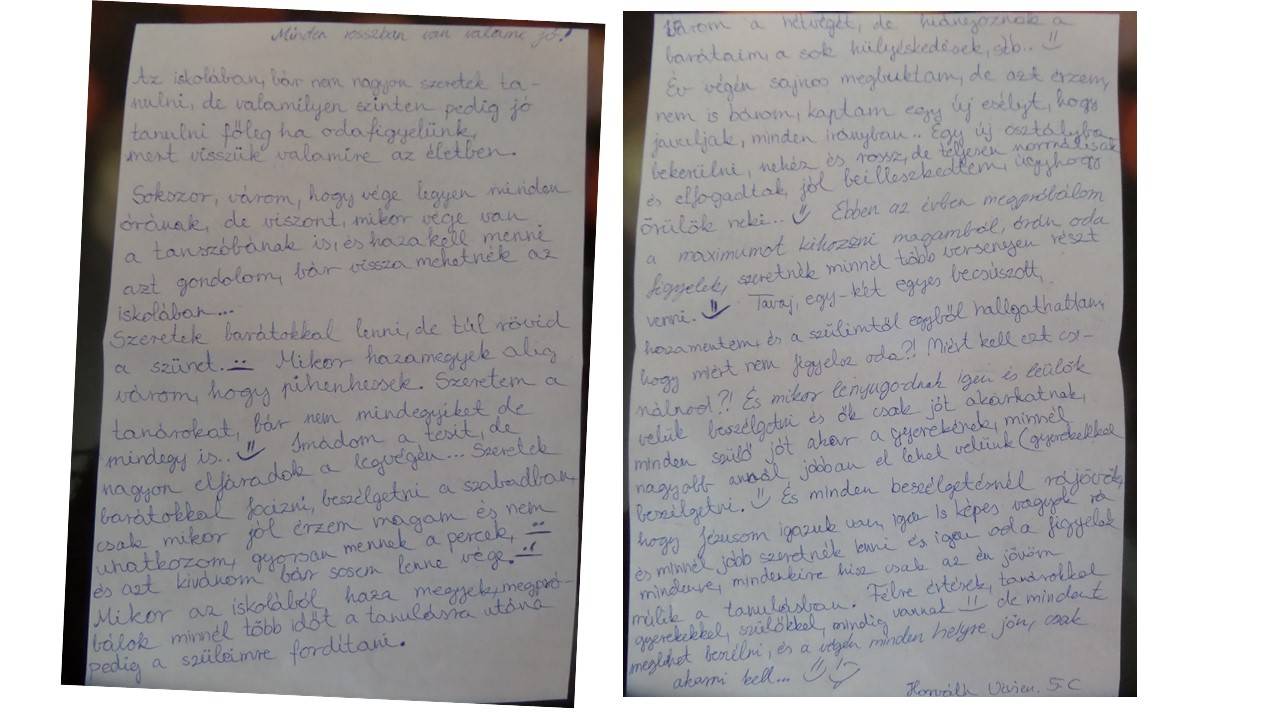 Minden rosszban van valami jó!
Az iskolában, bár nem nagyon szeretek ta-
nulni, de valamilyen szinten pedig jó
tanulni főleg ha odafigyelünk,
mert visszük valamire az életben.
Sokszor, várom, hogy vége legyen minden
órának, de viszont, mikor vége van
a tanszóbának is, és haza kell menni
azt gondolom, bár vissza mehetnék az
iskolában...
Szeretek barátokkal lenni, de túl rövid
a szünet. Mikor hazamegyek alig
várom, hogy pihenhessek. Szeretem a
tanárokat, bár nem mindegyiket de
mindegy is.. Imádom a tesit, de
nagyon elfáradok a legvégén... Szeretek
barátokkal focizni, beszélgetni a szabadban,
csak mikor jól érzem magam és nem
unatkozom, gyorsan mennek a percek,
és azt kivánom bár sosem lenne vége.
Mikor az iskolából haza megyek, megpró-
bálok minnél több időt a tanulásra utána
pedig a szüleimre fordítani.
Várom a hétvégét, de hiányoznak a
barátaim, a sok hülyéskedések, stb..
Év végén sajnos megbuktam, de azt érzem,
nem is bánom, kaptam egy új esélyt, hogy
javuljak, minden irányban.. Egy új osztályba
bekerülni, nehéz és rossz, de teljesen normálisak
és elfogadtak, jól beilleszkedtem, úgyhogy
örülök neki... Ebben az évben megpróbálom
a maximumot kihozni magamból, órán oda
figyelek, szeretnék minnél több versenyen részt
venni. Tavaj, egy-két egyes becsúszott,
hazamentem, és a szülimtől egyből hallgathattam,
hogy miért nem figyelsz oda?! Miért kell ezt csi-
nálnod?! És mikor lenyugodnak igen is leülök
velük beszélgetni és ők csak jót akarhatnak,
minden szülő jót akar a gyerekének, minnél
nagyobb annál jobban el lehet velünk (gyerekekkel
beszélgetni. És minden beszélgetésnél rájövök,
hogy Jézusom igazuk van, igen is képes vagyok rá
és minnél jobb szeretnék lenni és igen oda figyelek
mindenre, mindenkire hisz csak az én jövőm
múlik a tanulásban. Félre értések, tanárokkal
gyerekekkel, szülőkkel, mindig vannak de mindent
meglehet beszélni, és a végén minden helyre jön, csak
akarni kell...
Horváth 5.C